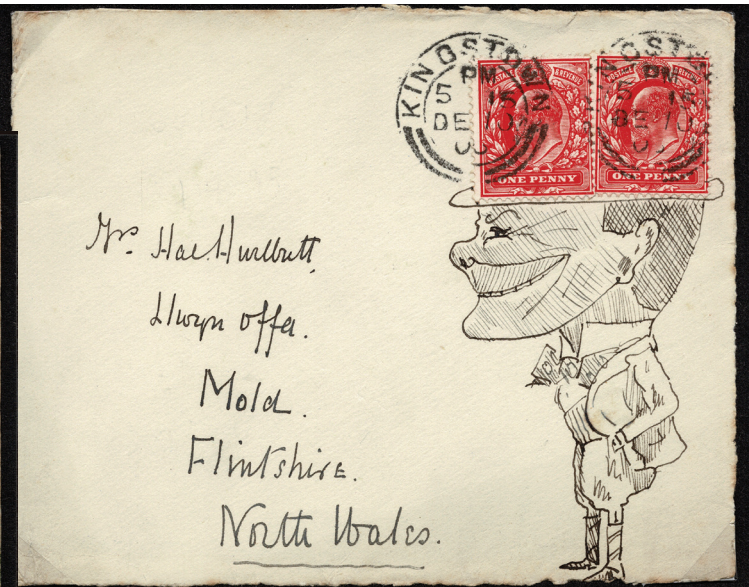 KINGSTON
PM
5 15
DE 10
POSTAGE & REVENUE
ONE PENNY
POSTAGE & REVENUE
ONE PENNY
Mrs Hal Hurlbutt,
Llwyn Offa.
Mold.
Flintshire.
North Wales.